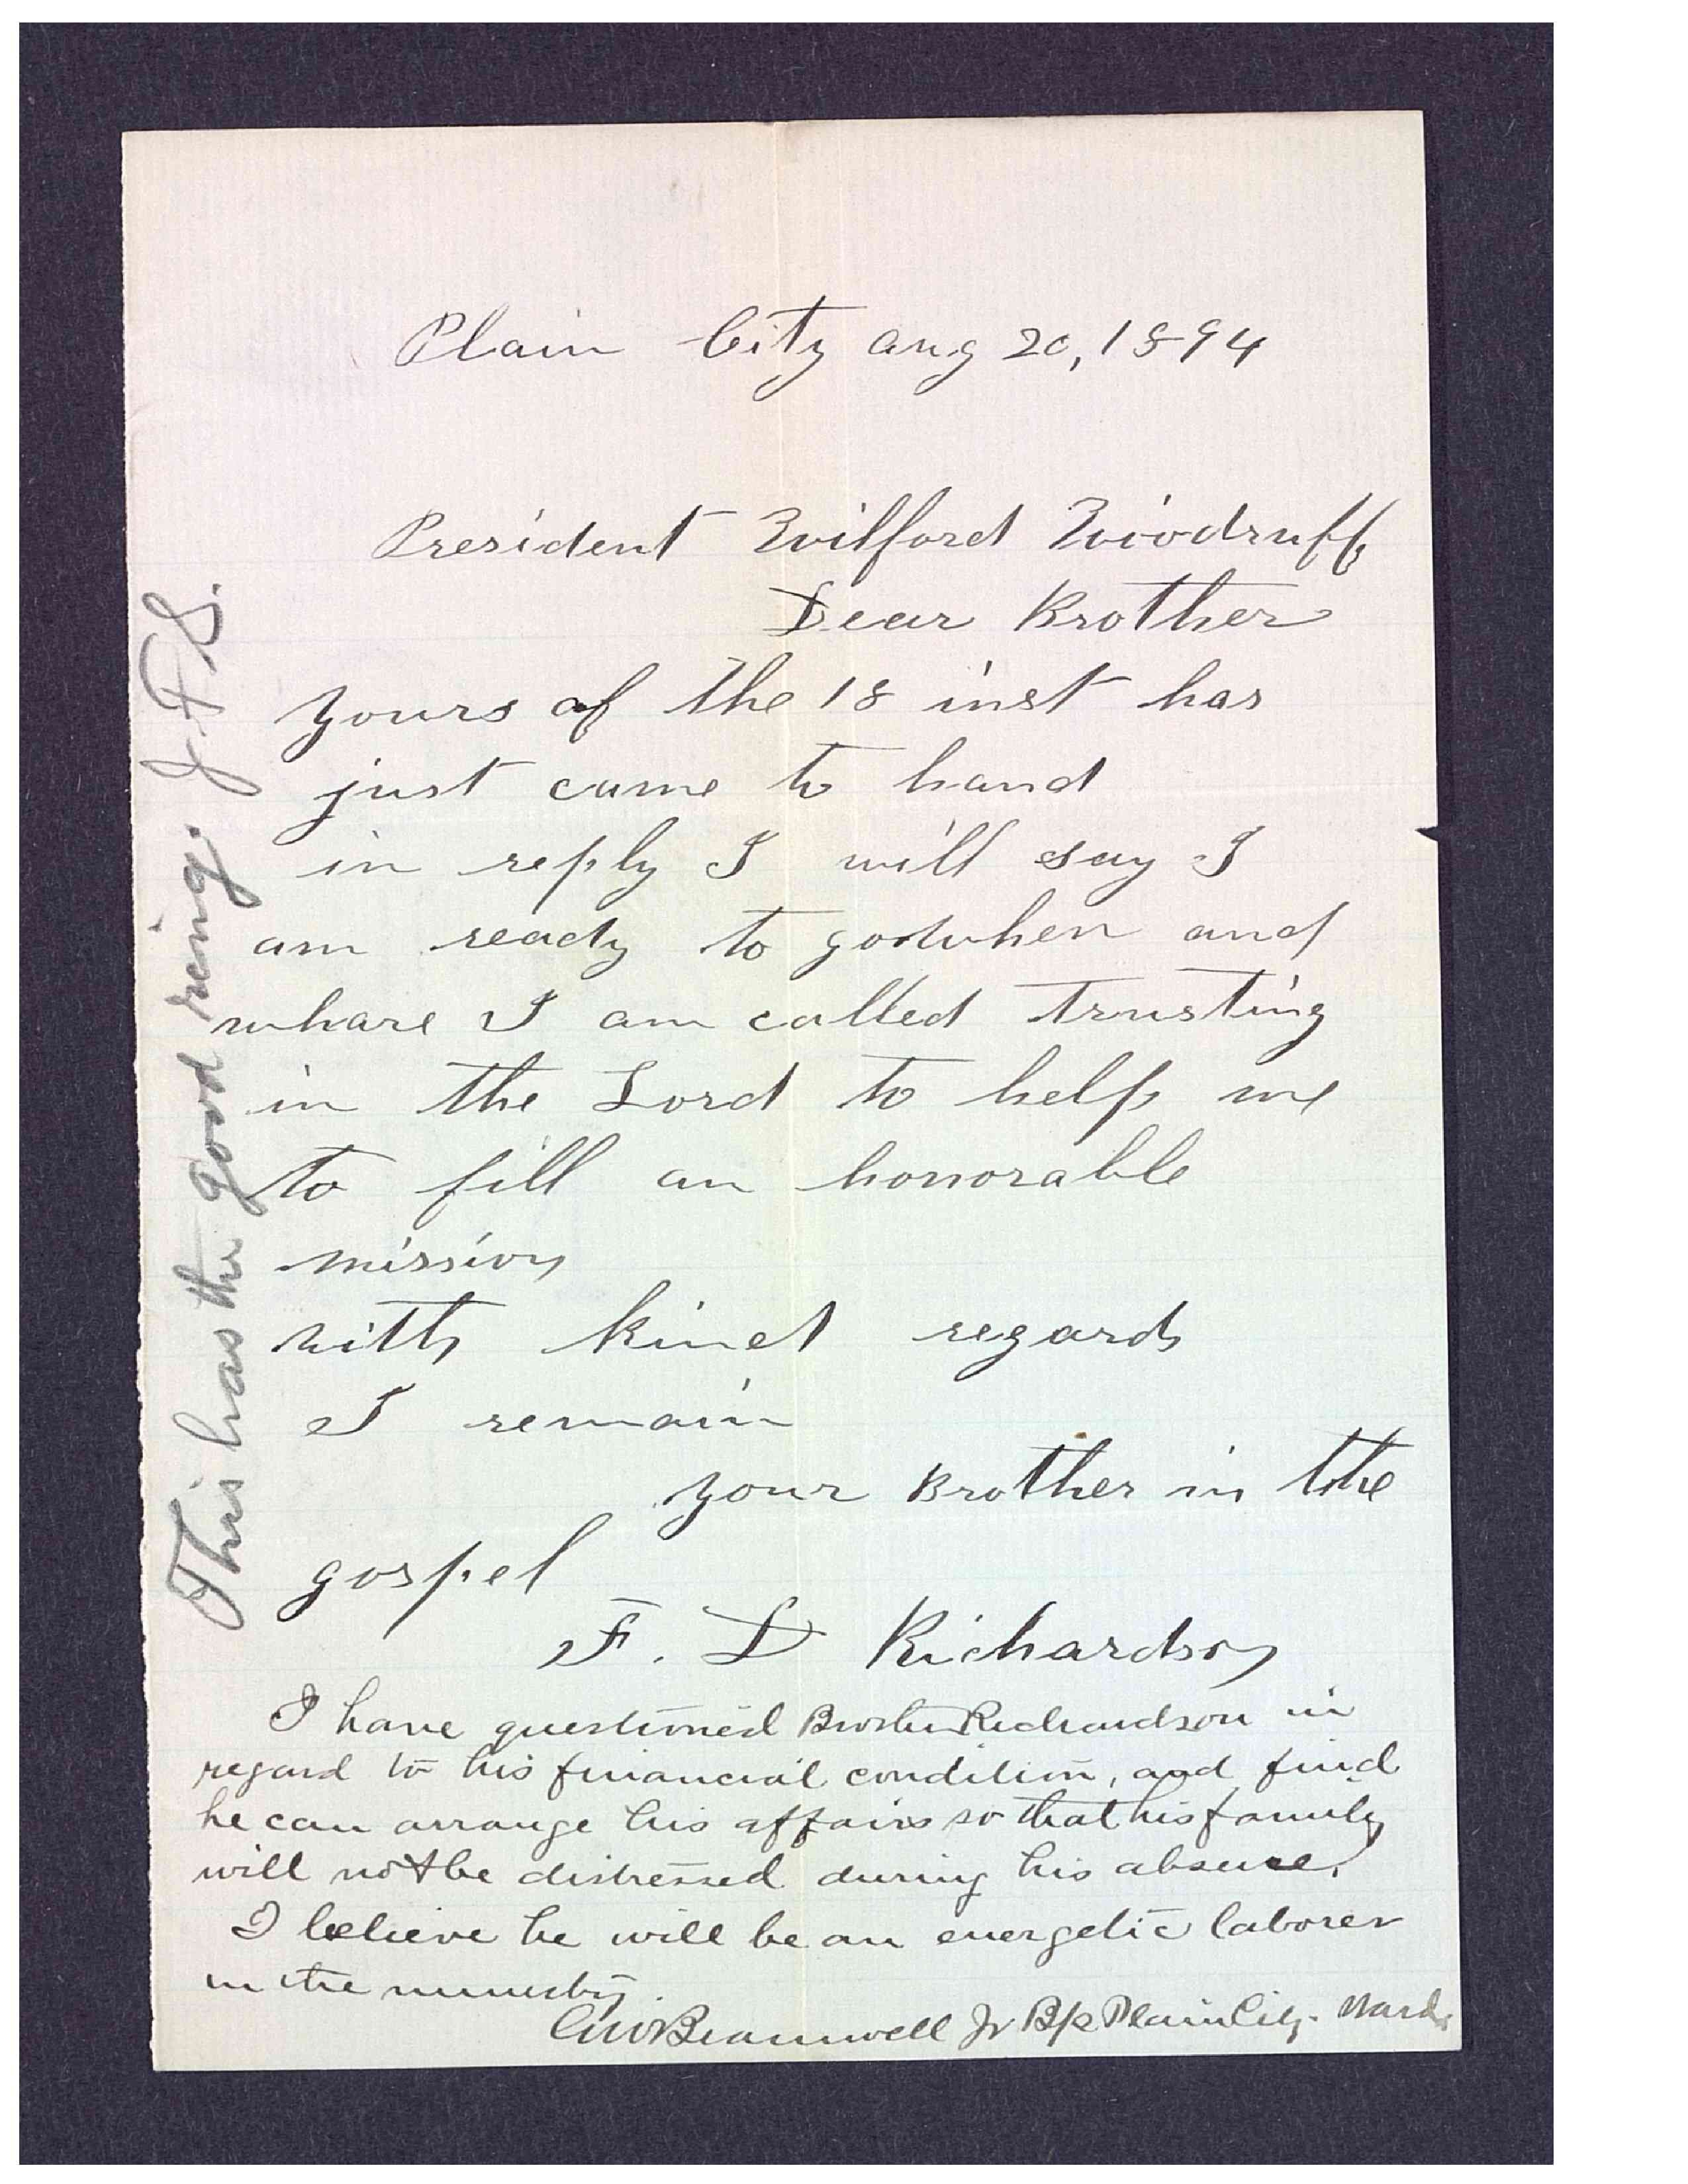 Plain City Aug 20, 1894
President Wilford Woodruff
Dear Brother
yours of the 18 inst has
just came to hand
in reply I will say I
am ready to go when and
whare I am called trusting
in the Lord to help me
to fill an honorable
mission
with kind regards
I remain
your Brother in the
gospel
F. D Richardson
I have questioned Brother Richardson in
regard to his financial condition, and find
he can arrange his affairs so that his family
will not be distressed during his absence.
I believe he will be an energetic laborer
in the ministry.
Bramwell Jr Bp Plain City Ward.
This has the good ring. J. F. S.